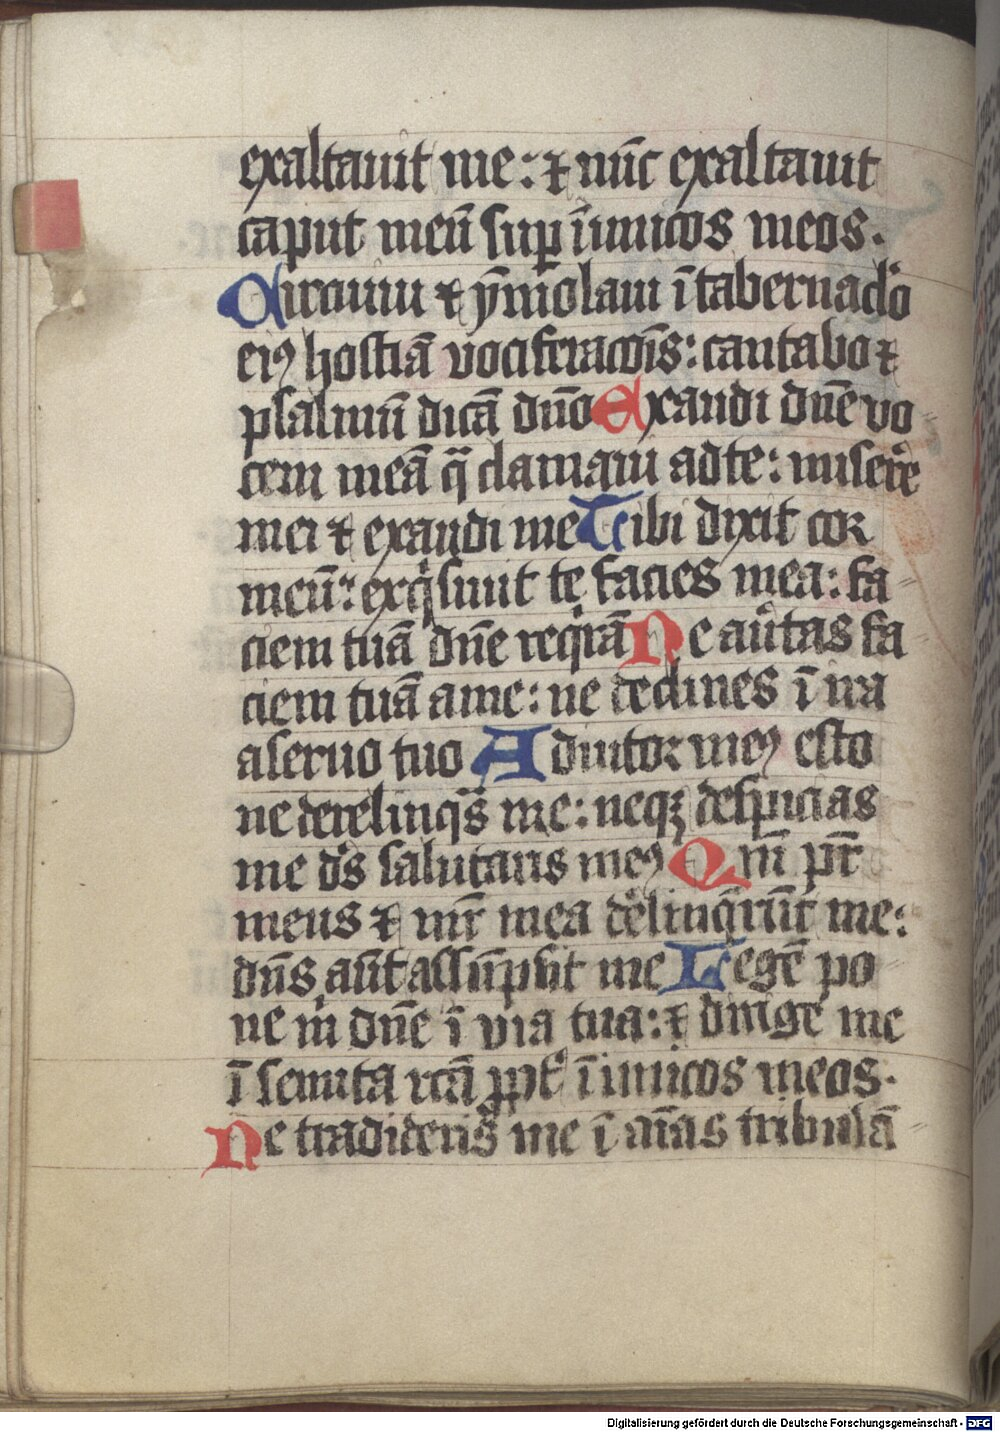 exaltauit me: ⁊ nūc exaltauit
caput meū suꝑ īimicos meos.
Circuiui ⁊ ȳmolaui ī tabernaclo
eiꝰ hostiā vociferacōis: cantabo ⁊
psalmū dicā dn̄o Exaudi dn̄e vo
cem meā q̄ clamaui ad te: misere
mei ⁊ exaudi me Tibi dixit cor
meū: exqͥsiuit te facies mea: fa
ciem tuā dn̄e reqͥrā Ne au̾tas fa
ciem tuā a me: ne declines ī ira
a seruo tuo Adiutor meꝰ esto
ne derelinqͣs me: neqꝫ despicias
me ds̄ salutaris meꝰ Qm̄ pr̄
meus ⁊ mr̄ mea dereliq̄rūt me:
dn̄s aūt assūpsit me Legē po
ne m̍ dn̄e ī via tua: ⁊ dirige me
ī semita rc̄ā ꝓpt̾ īimicos meos.
Ne tradideris me ī aīas tribulā
Digitalisierung gefördert durch die Deutsche Forschungsgemeinschaft - DFG